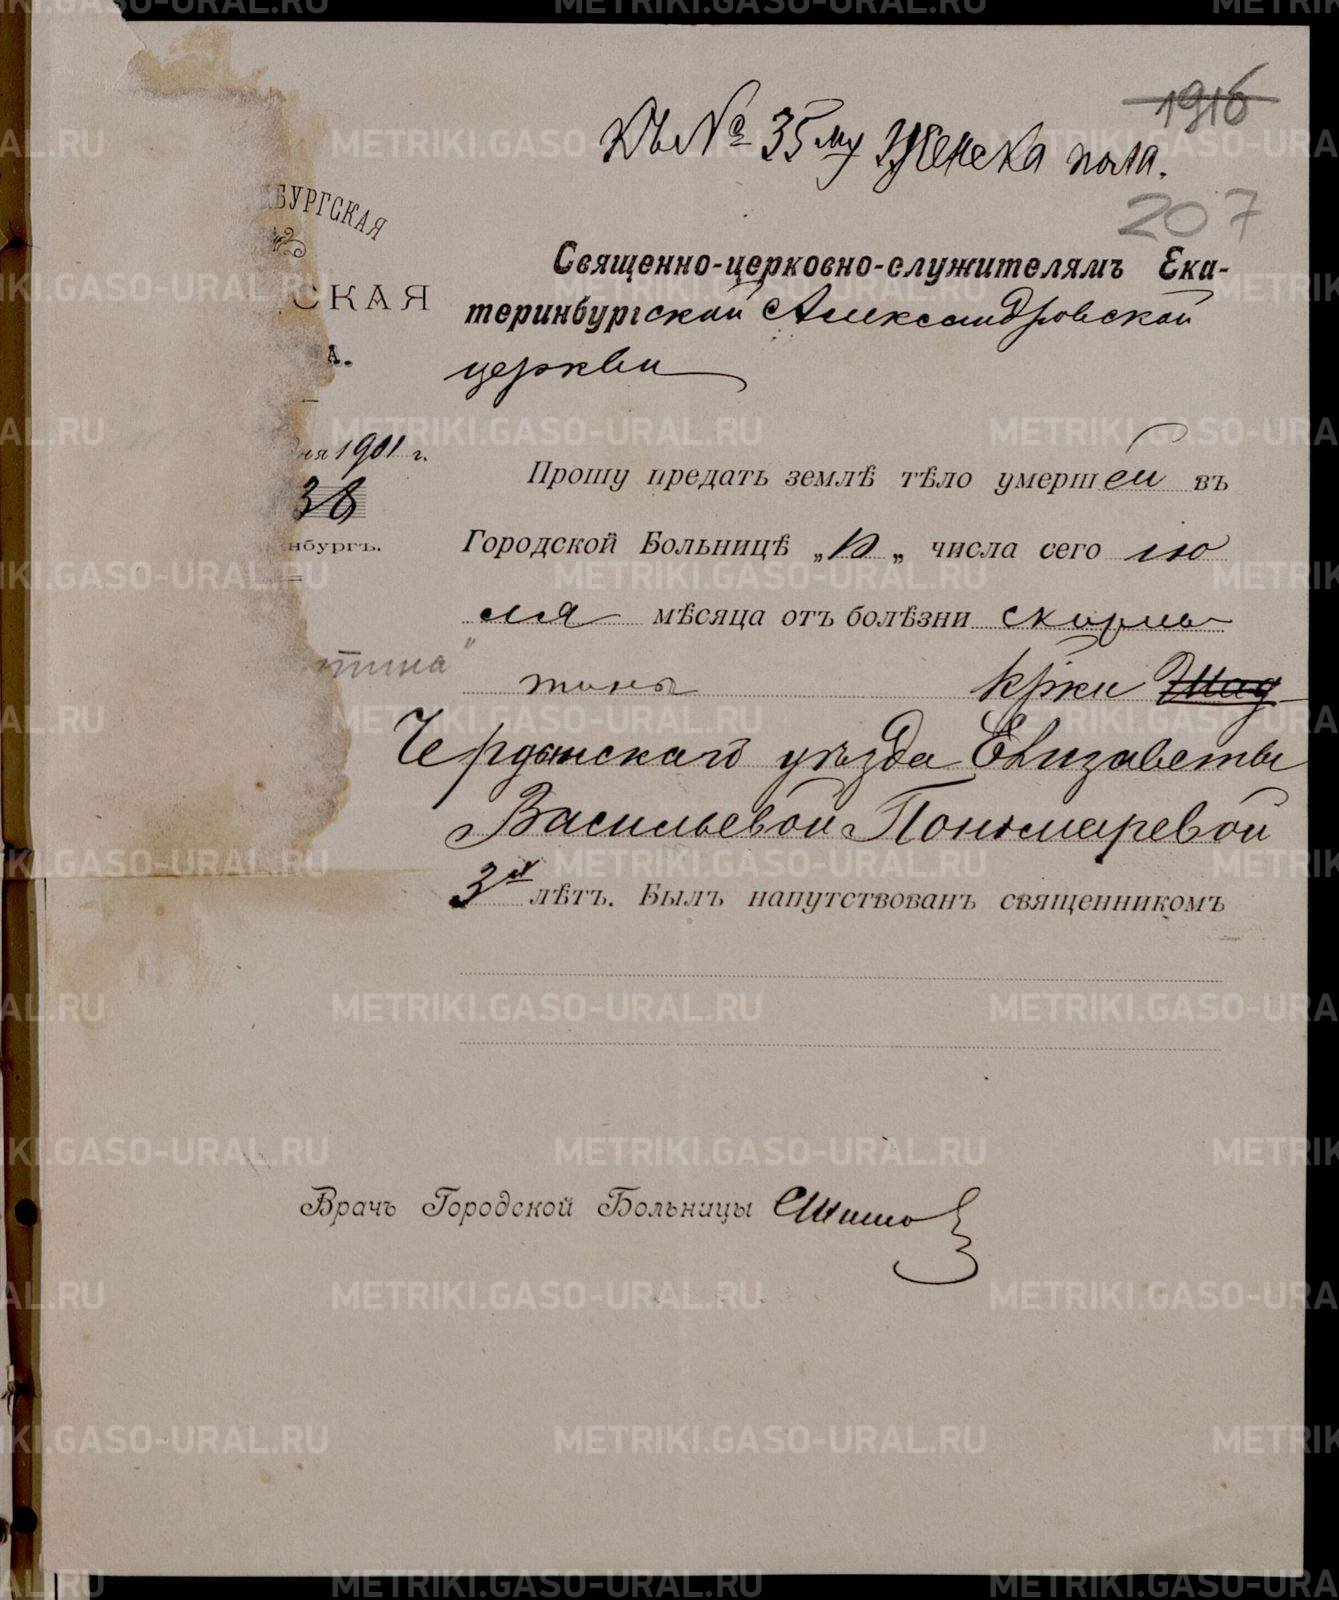 1916
Къ № 35му Женска пола.
207
Священно-церковно-служителямъ Ека-
теринбургской Александровской
церкви
БУРГСКАЯ
СКАЯ
А.
ня 1901 г.
38
нбургъ.
тина"
Прошу предать землѣ тѣло умершей въ
Городской Больницѣ „10„ числа сего ию
ля мѣсяца отъ болѣзни скарла
тины кр҃ки
Чердынскаго уѣзда Елизаветы
Васильевой Пономаревой
3х лѣтъ. Былъ напутствованъ священникомъ
Врачъ Городской Больницы
METRIKI.GASO-URAL.RU